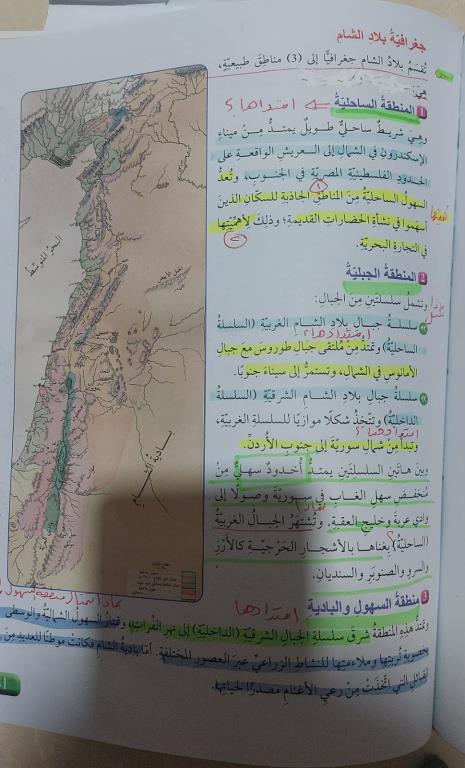 جغرافيّةُ بلادِ الشامِ
تُقسَمُ بلادُ الشامِ جغرافيًّا إلى (3) مناطقَ طبيعيّةٍ،
هيَ:
1 المنطقةُ الساحليّةُ ← امتدادها؟
وهيَ شريطٌ ساحليٌّ طويلٌ يمتدُّ مِنْ ميناءِ
الإسكندرونِ في الشمالِ إلى العريشِ الواقعةِ على
الحدودِ الفلسطينيّةِ المصريّةِ في الجنوبِ، وتُعدُّ
السهولُ الساحليّةُ مِنَ المناطقِ الجاذبةِ للسكّانِ الذينَ
أسهموا في نشأةِ الحضاراتِ القديمةِ؛ وذلكَ لأهمّيّتِها
في التجارةِ البحريّةِ.
2 المنطقةُ الجبليّةُ
وتشملُ سلسلتَينِ مِنَ الجبالِ:
سلسلةُ جبالِ بلادِ الشامِ الغربيّةِ (السلسلةُ
امتدادها؟
الساحليّةُ) وتمتدُّ مِنْ مُلتقى جبالِ طوروسَ معَ جبالِ
الأمانوسِ في الشمالِ، وتستمرُّ إلى سيناءَ جنوبًا.
سلسلةُ جبالِ بلادِ الشامِ الشرقيّةِ (السلسلةُ
الداخليّةُ) وتتّخذُ شكلًا موازيًا للسلسلةِ الغربيّةِ،
امتدادها؟
وتبدأُ مِنْ شمالِ سوريّةَ إلى جنوبِ الأردنِّ.
وبينَ هاتَينِ السلسلتَينِ يمتدُّ أخدودٌ سهليٌّ مِنْ
مُنخفضِ سهلِ الغابِ في سوريّةَ وصولًا إلى
وادي عربةَ وخليجِ العقبةِ. وتشتهرُ الجبالُ الغربيّةُ
(الساحليّةُ) بغناها بالأشجارِ الحرجيّةِ كالأرزِ
والسروِ والصنوبرِ والسنديانِ.
3 منطقةُ السهولِ والباديةِ امتدادها
وتمتدُّ هذهِ المنطقةُ شرقَ سلسلةِ الجبالِ الشرقيّةِ (الداخليّةِ) إلى نهرِ الفراتِ، وتمتازُ السهولُ الشماليّةُ والوسطى
بخصوبةِ تُربتِها وملاءمتِها للنشاطِ الزراعيِّ عبرَ العصورِ المختلفةِ. أمّا باديةُ الشامِ فكانتْ موطنًا للعديدِ مِنَ
القبائلِ التي اتّخذَتْ مِنْ رعيِ الأغنامِ مصدرًا لحياتِها.
البحر المتوسط
باديـة الشـام